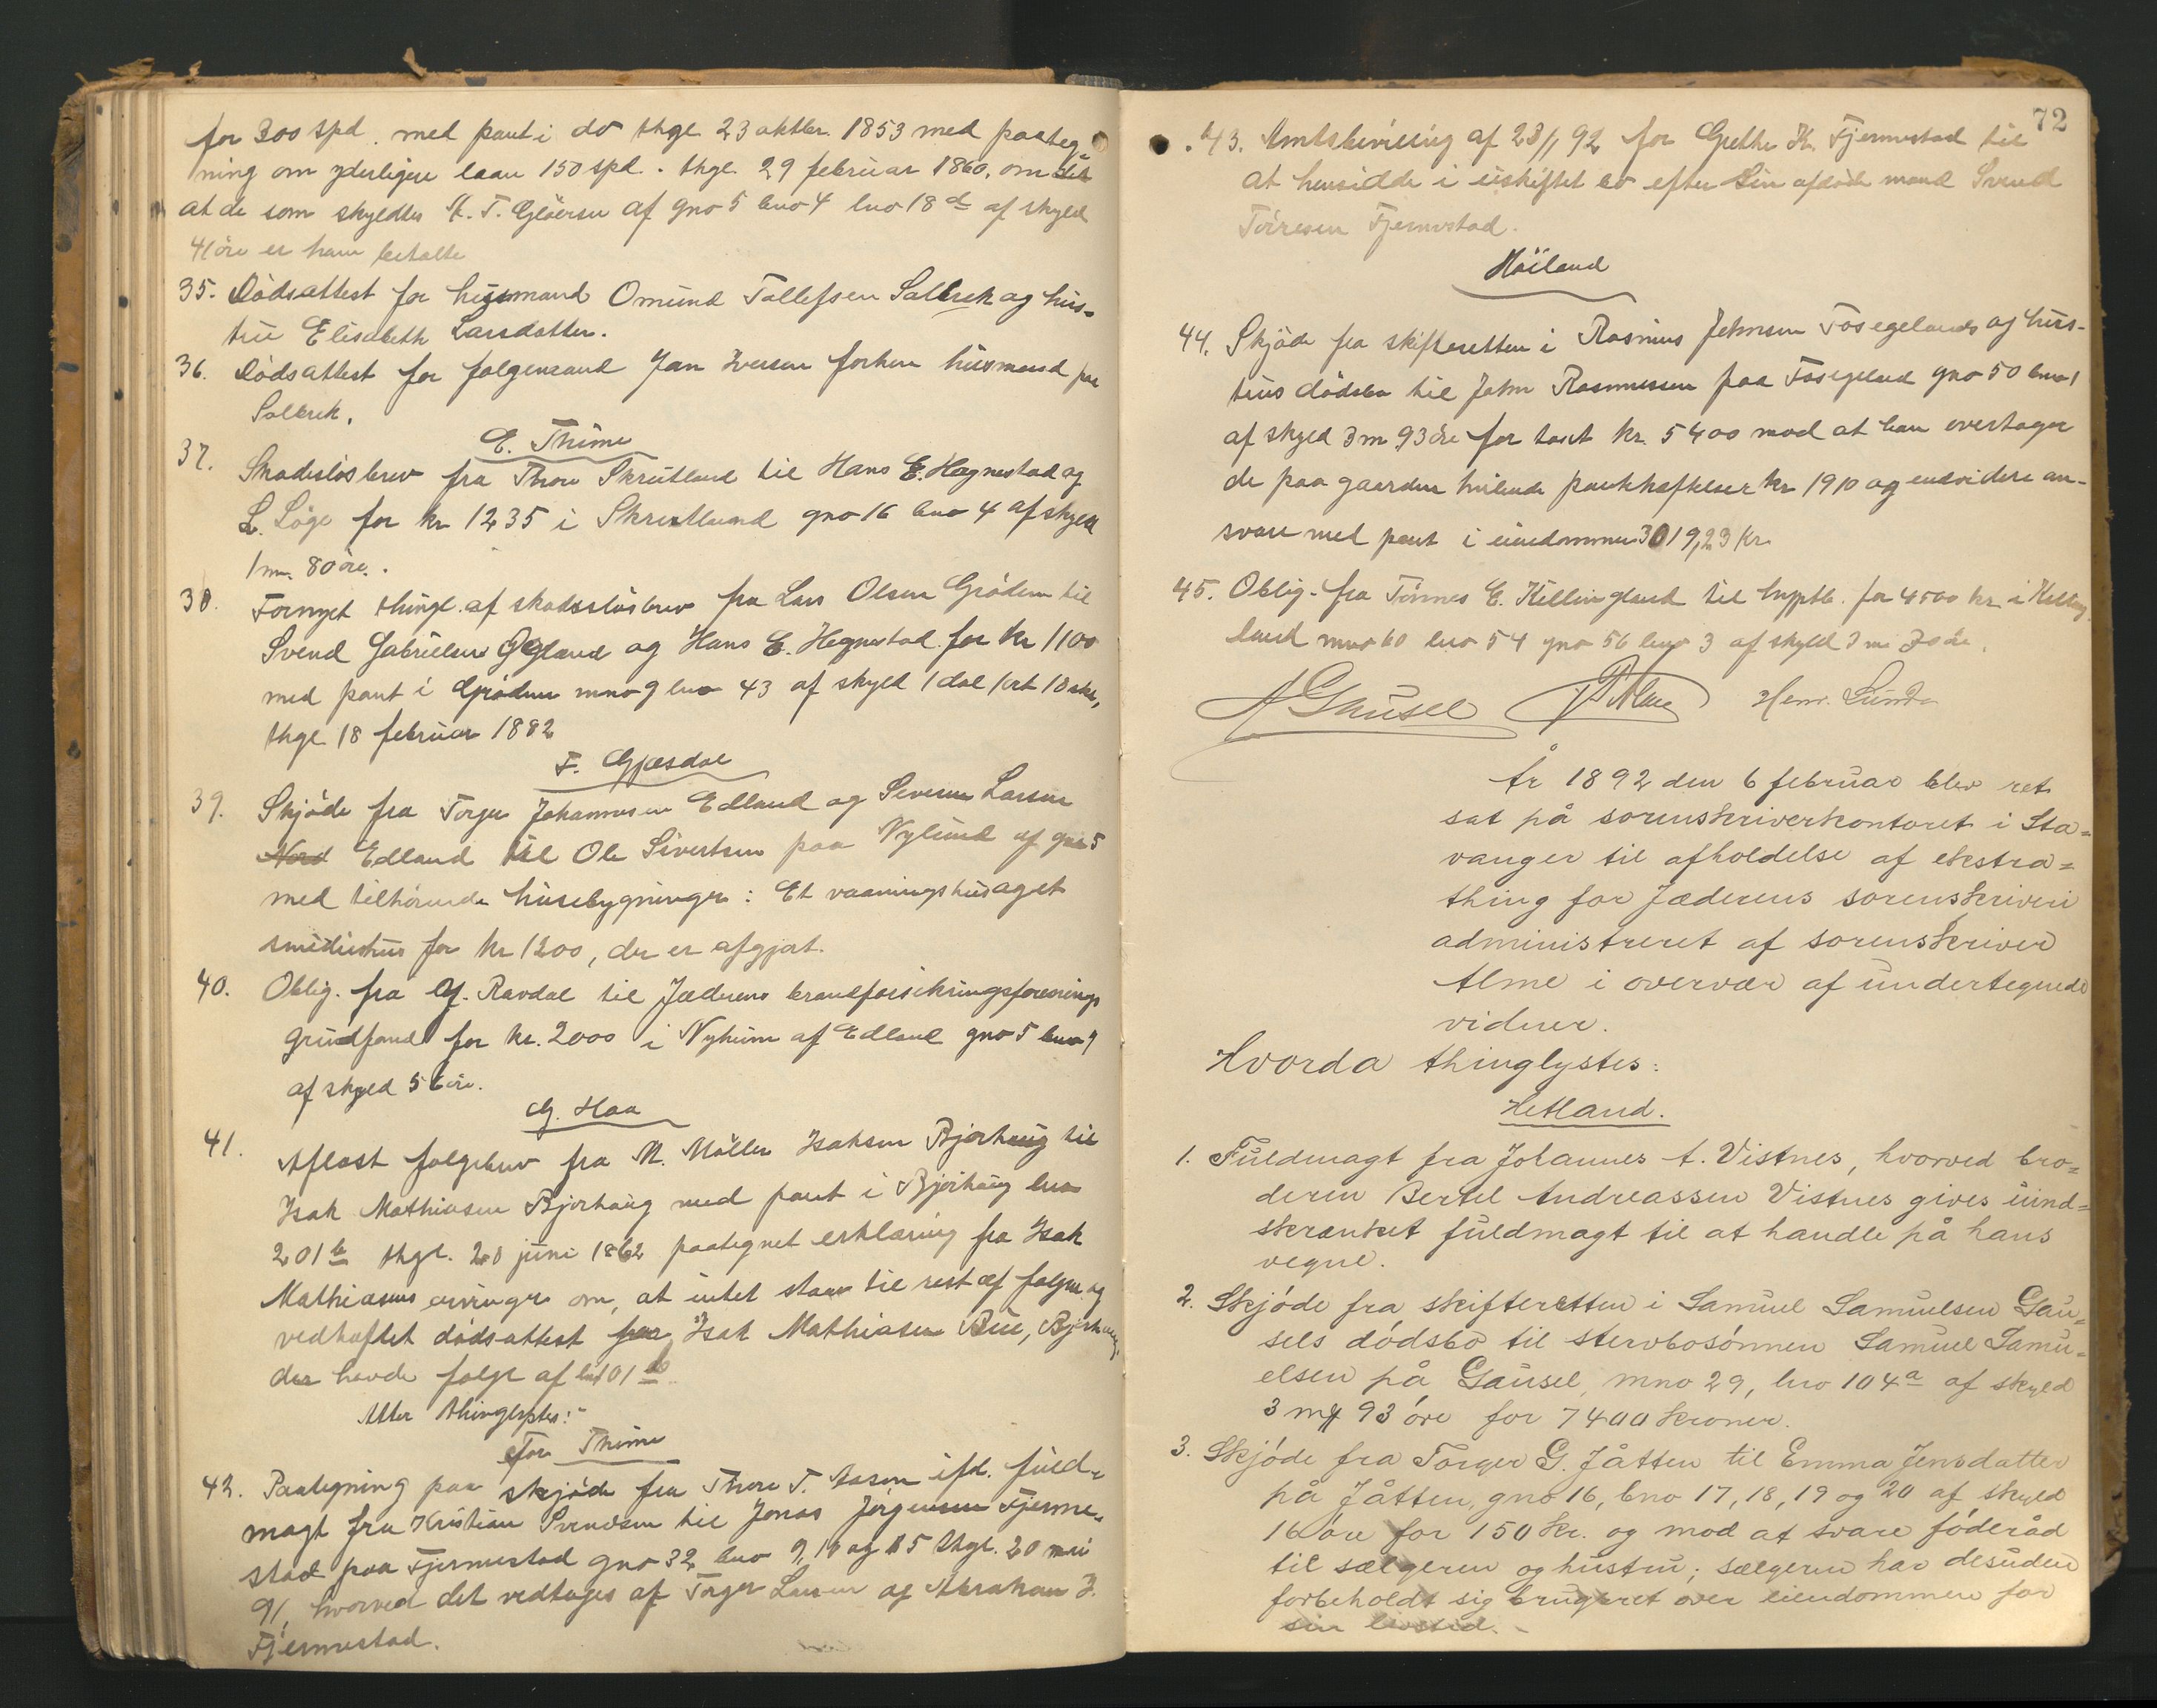 for 300 spd. med pant i do thgl 23 oktbr. 1853 med paateg-
ning om yderligere laan 150 spd. thgl. 29 februar 1860, om
at de som skyldtes af gno 5 bno 4 lno 18 d af skyld
41 öre er ham betalte
35. Dødsattest for husmand Omund Tollefsen Solbrek og hus-
tru Elisabeth Larsdatter.
36. Dødsattest for folgemand Jan Iversen forhen husmand paa
Solbrek.
E. Thime
37. Skadesløsbrev fra Thore Skrutland til Hans E. Hognestad og
L. Löge for kr 1235 i Skrutland gno 16 bno 4 af skyld
1 m. 80 öre.
38. Fornyet thingl. af skadesløsbrev fra Lars Olsen Grödem til
Svend Gabrielsen og Hans E. Hognestad for kr 1100
med pant i Grödem mno 9 lno 43 af skyld 1 dal 1 ort 18 sk,
thgl 18 februar 1882
F. Gjæsdal
39. Skjöde fra Torger Johannesen Edland og Severin Larsen
Edland til Ole Sivertsen paa Nylund af gno 5
med tilhörende husebygninger: Et vaaningshus og et
smidiehus for kr 1200, der er afgjort.
40. Oblig. fra G. Ravdal til Jæderens brandforsikringsforenings
grundfond for kr. 2000 i af Edland gno 5 bno 9
af skyld 56 öre.
G. Haa
41. Aflæst folgebrev fra M. Möller Isaksen Bjorhaug til
Isak Mathiasen Bjorhaug med pant i Bjorhaug lno
201 b thgl. 28 juni 1862 paategnet erklæring fra Isak
Mathiasens arvinger om, at intet staar til rest af folgen og
vedhæftet dödsattest for Isak Mathiasen Bue, Bjorhaug,
der havde folge af lno 101 b
Atter thinglystes:
for Thime
42. Paategning paa skjöde fra Thore T. Aasen ifl. fuld-
magt fra Kristian Svendsen til Jonas Jörgensen Fjerme-
stad paa Fjermestad gno 32 bno 9, 10 og 15 thgl. 20 mai
91, hvorved det vedtages af Torger Larsen og Abraham J.
Fjermestad.
72
43. Amtsbevilling af 23/1 92 for Grethe K. Fjermestad til
at hensidde i uskiftet bo efter sin afdöde mand Svend
Törresen Fjermestad.
Höiland
44. Skjöde fra skifteretten i Rasmus Johnsen Fosegelands og hus-
trus dödsbo til John Rasmussen paa Fosegeland gno 50 bno 1
af skyld 3 m 93 öre for taxt kr. 5400 mod at han overtager
de paa gaarden hvilende pantheftelser kr 1910 og endvidere an-
svare med pant i eiendommen 3019,23 kr.
45. Oblig. fra Tönnes E. Kellingland til hyptb. for 4500 kr. i Kelling-
land mno 60 lno 54 gno 56 bno 3 af skyld 3 m
A Gausel Alme Henr. Lunde
År 1892 den 6 februar blev ret
sat på sorenskriverkontoret i Sta-
vanger til afholdelse af ekstra-
thing for Jæderens sorenskriveri
administreret af sorenskriver
Alme i overvær af undertegnede
vidner.
Hvorda thinglystes:
Hetland.
1. Fuldmagt fra Johannes A. Vistnes, hvorved bro-
deren Bertel Andreassen Vistnes gives uind-
skrænket fuldmagt til at handle på hans
vegne.
2. Skjöde fra skifteretten i Samuel Samuelsen Gau-
sels dödsbo til stervbosönnen Samuel Samu-
elsen på Gausel, mno 29, lno 104 a af skyld
3 mk 93 öre for 7400 kroner.
3. Skjöde fra Torger G. Jåtten til Emma Jensdatter
på Jåtten, gno 16, bno 17, 18, 19 og 20 af skyld
16 öre for 150 kr. og mod at svare föderåd
til sælgeren og hustru; sælgeren har desuden
forbeholdt sig brugsret over eiendommen for
sin livstid.